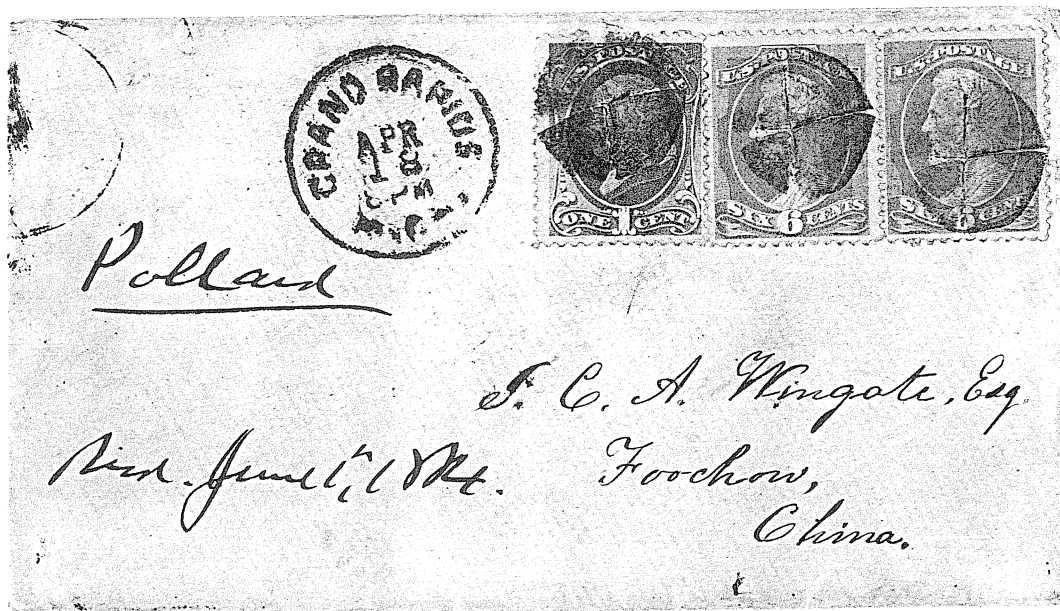 GRAND RAPIDS
APR
18
8 PM
MICH.
U.S. POSTAGE
ONE 1 CENT
U.S. POSTAGE
SIX 6 CENTS
U.S. POSTAGE
SIX 6 CENTS
Pollard
J. C. A. Wingate, Esq.
Foochow,
China.
June 1st, 1884.